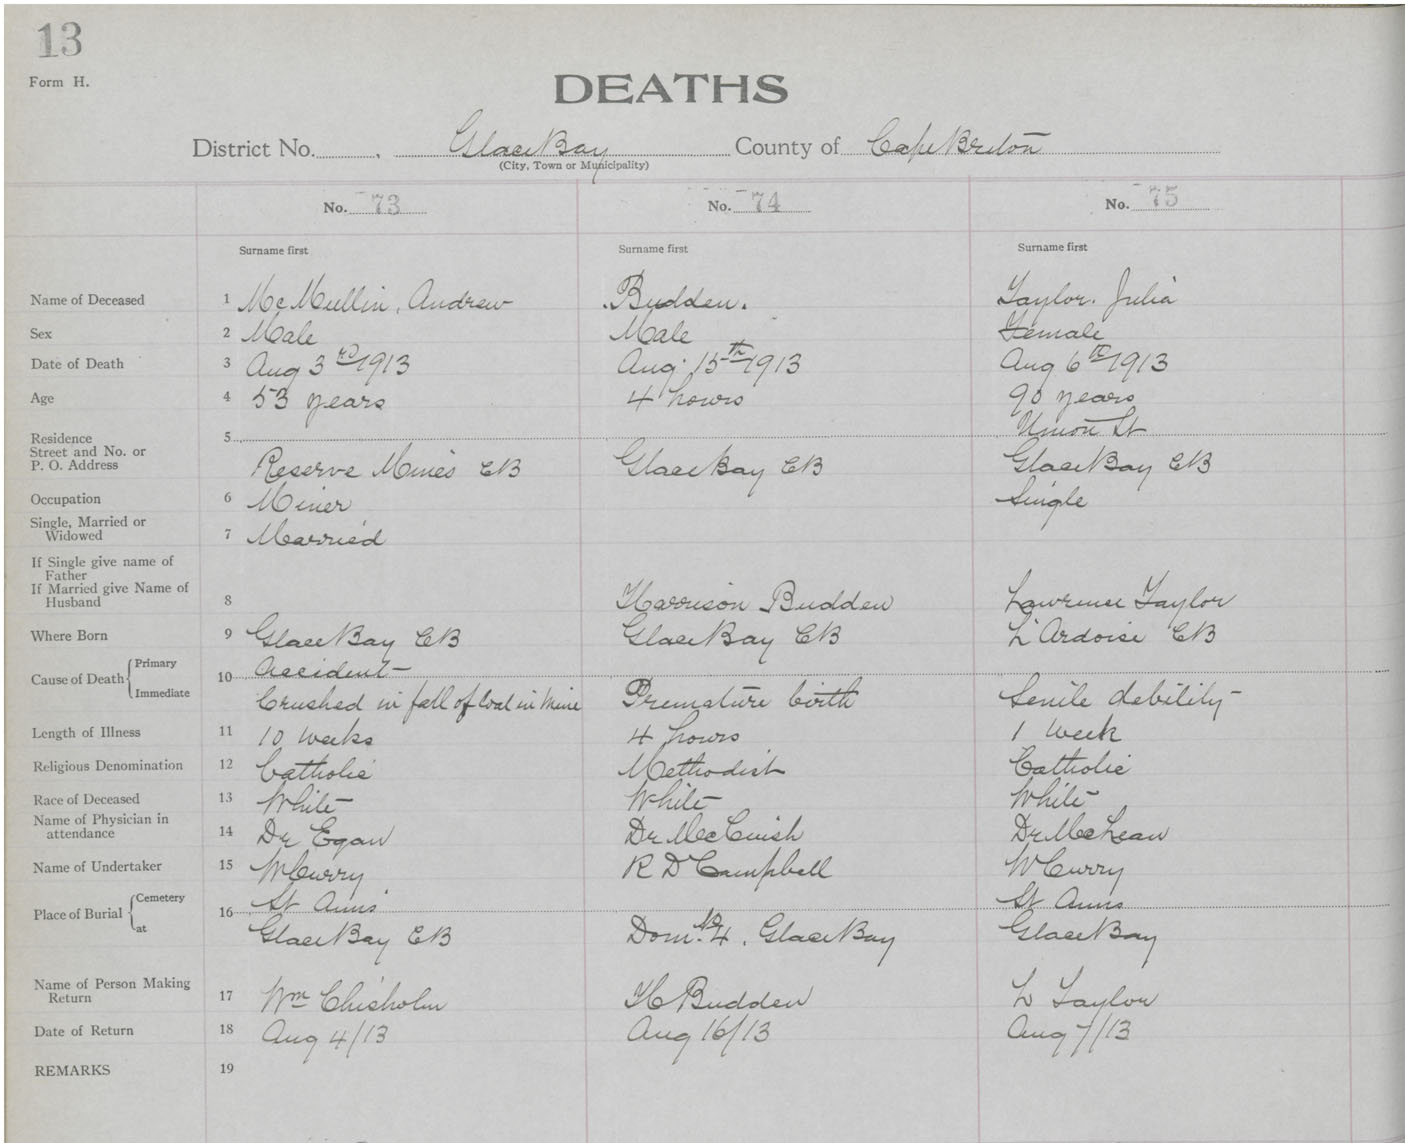 13
Form H.
DEATHS
District No. Glace Bay County of Cape Breton
(City, Town or Municipality)
No. 73 No. 74 No. 75
Surname first Surname first Surname first
Name of Deceased 1 McMullin, Andrew Budden. Taylor. Julia
Sex 2 Male Male Female
Date of Death 3 Aug 3rd 1913 Aug 15th 1913 Aug 6th 1913
Age 4 53 years 4 hours 90 years
Residence 5 Union St
Street and No. or
P. O. Address Reserve Mines CB Glace Bay CB Glace Bay CB
Occupation 6 Miner Single
Single, Married or
Widowed 7 Married
If Single give name of
Father
If Married give Name of
Husband 8 Harrison Budden Lawrence Taylor
Where Born 9 Glace Bay CB Glace Bay CB L'Ardoise CB
Cause of Death Primary 10 Accident
Immediate Crushed in fall of Coal in Mine Premature birth Senile debility
Length of Illness 11 10 weeks 4 hours 1 week
Religious Denomination 12 Catholic Methodist Catholic
Race of Deceased 13 White White White
Name of Physician in
attendance 14 Dr Egan Dr McCuish Dr McLean
Name of Undertaker 15 W Curry R D Campbell W Curry
Place of Burial Cemetery 16 St Anns St Anns
at Glace Bay CB Dom. No 4, Glace Bay Glace Bay
Name of Person Making
Return 17 Wm Chisholm H Budden L Taylor
Date of Return 18 Aug 4/13 Aug 16/13 Aug 7/13
REMARKS 19